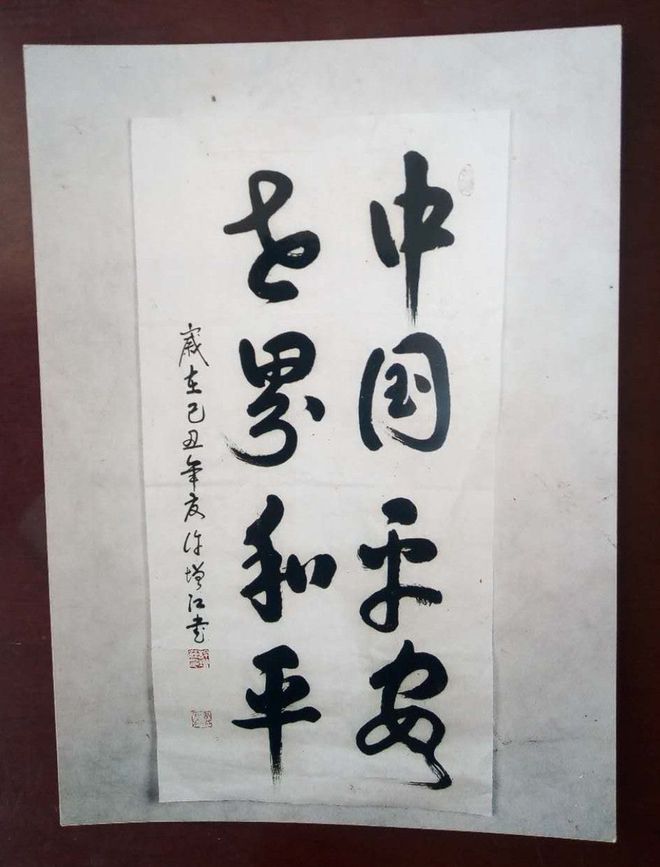 中国平安
世界和平
歳在己丑年夏许增江书